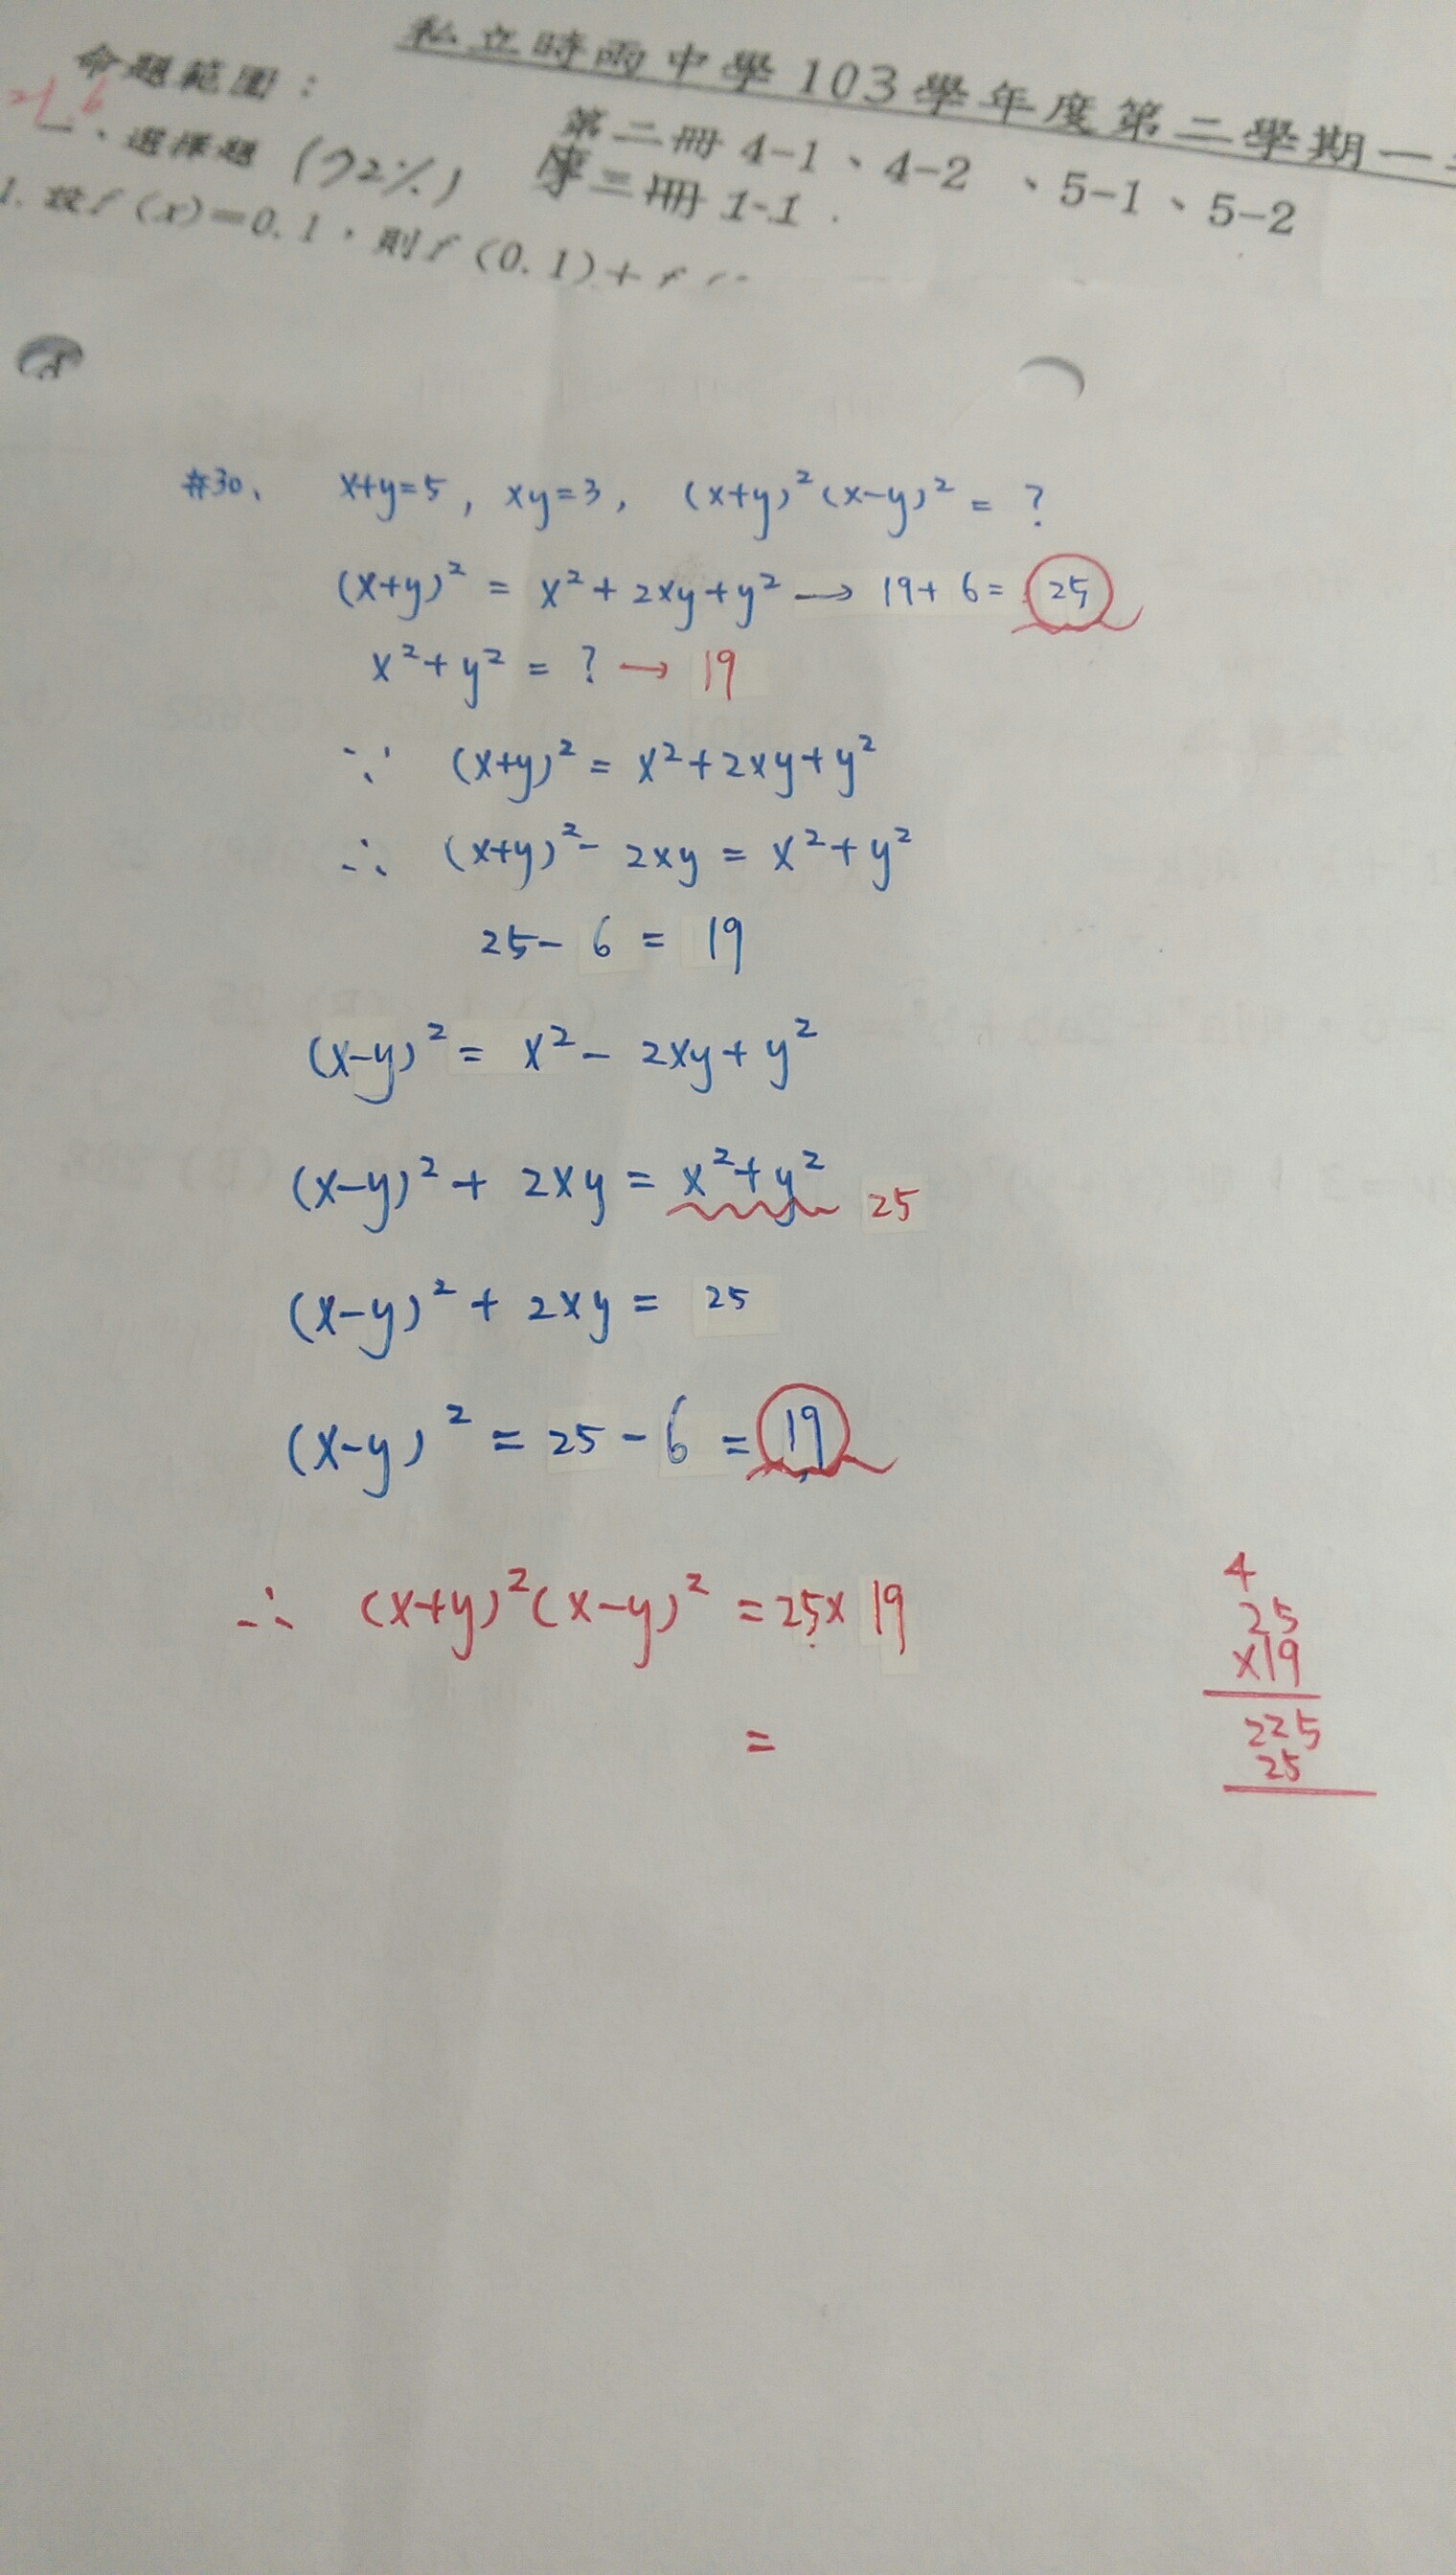 私立時雨中學103學年度第二學期一
命題範圍：
第二冊 4-1、4-2、5-1、5-2
第三冊 1-1
一、選擇題 (72%)
1. 設f(x)=0.1，則f(0.1)+f
#30、 x+y=5, xy=3, (x+y)²(x-y)² = ?
(x+y)² = x²+2xy+y² → 19+6= 25
x²+y² = ? → 19
∵ (x+y)² = x²+2xy+y²
∴ (x+y)²- 2xy = x²+y²
25- 6 = 19
(x-y)² = x²- 2xy+y²
(x-y)²+ 2xy = x²+y² 25
(x-y)² + 2xy = 25
(x-y)² = 25-6 = 19
∴ (x+y)²(x-y)² = 25x19
=
4
25
x19
225
25